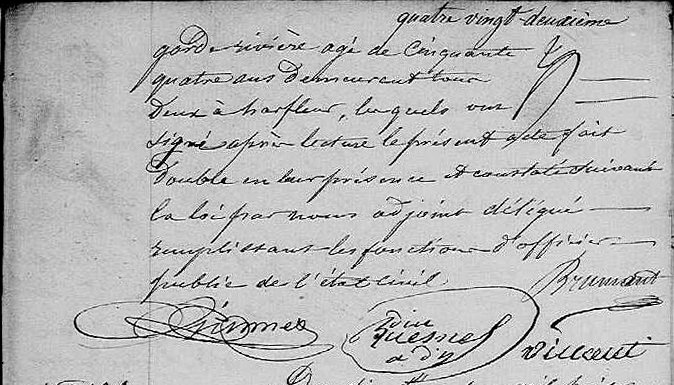 quatre vingt-deuxième
garde rivière agé de Cinquante
quatre ans demeurent tous
Deux à harfleur, lesquels ont
signé après lecture le présent acte fait
double en leur présence et constaté suivant
la loi par nous adjoint délégué
remplissant les fonctions d'officier
public de l'état Civil.
Brumant
Quesnel
adj
Vincent